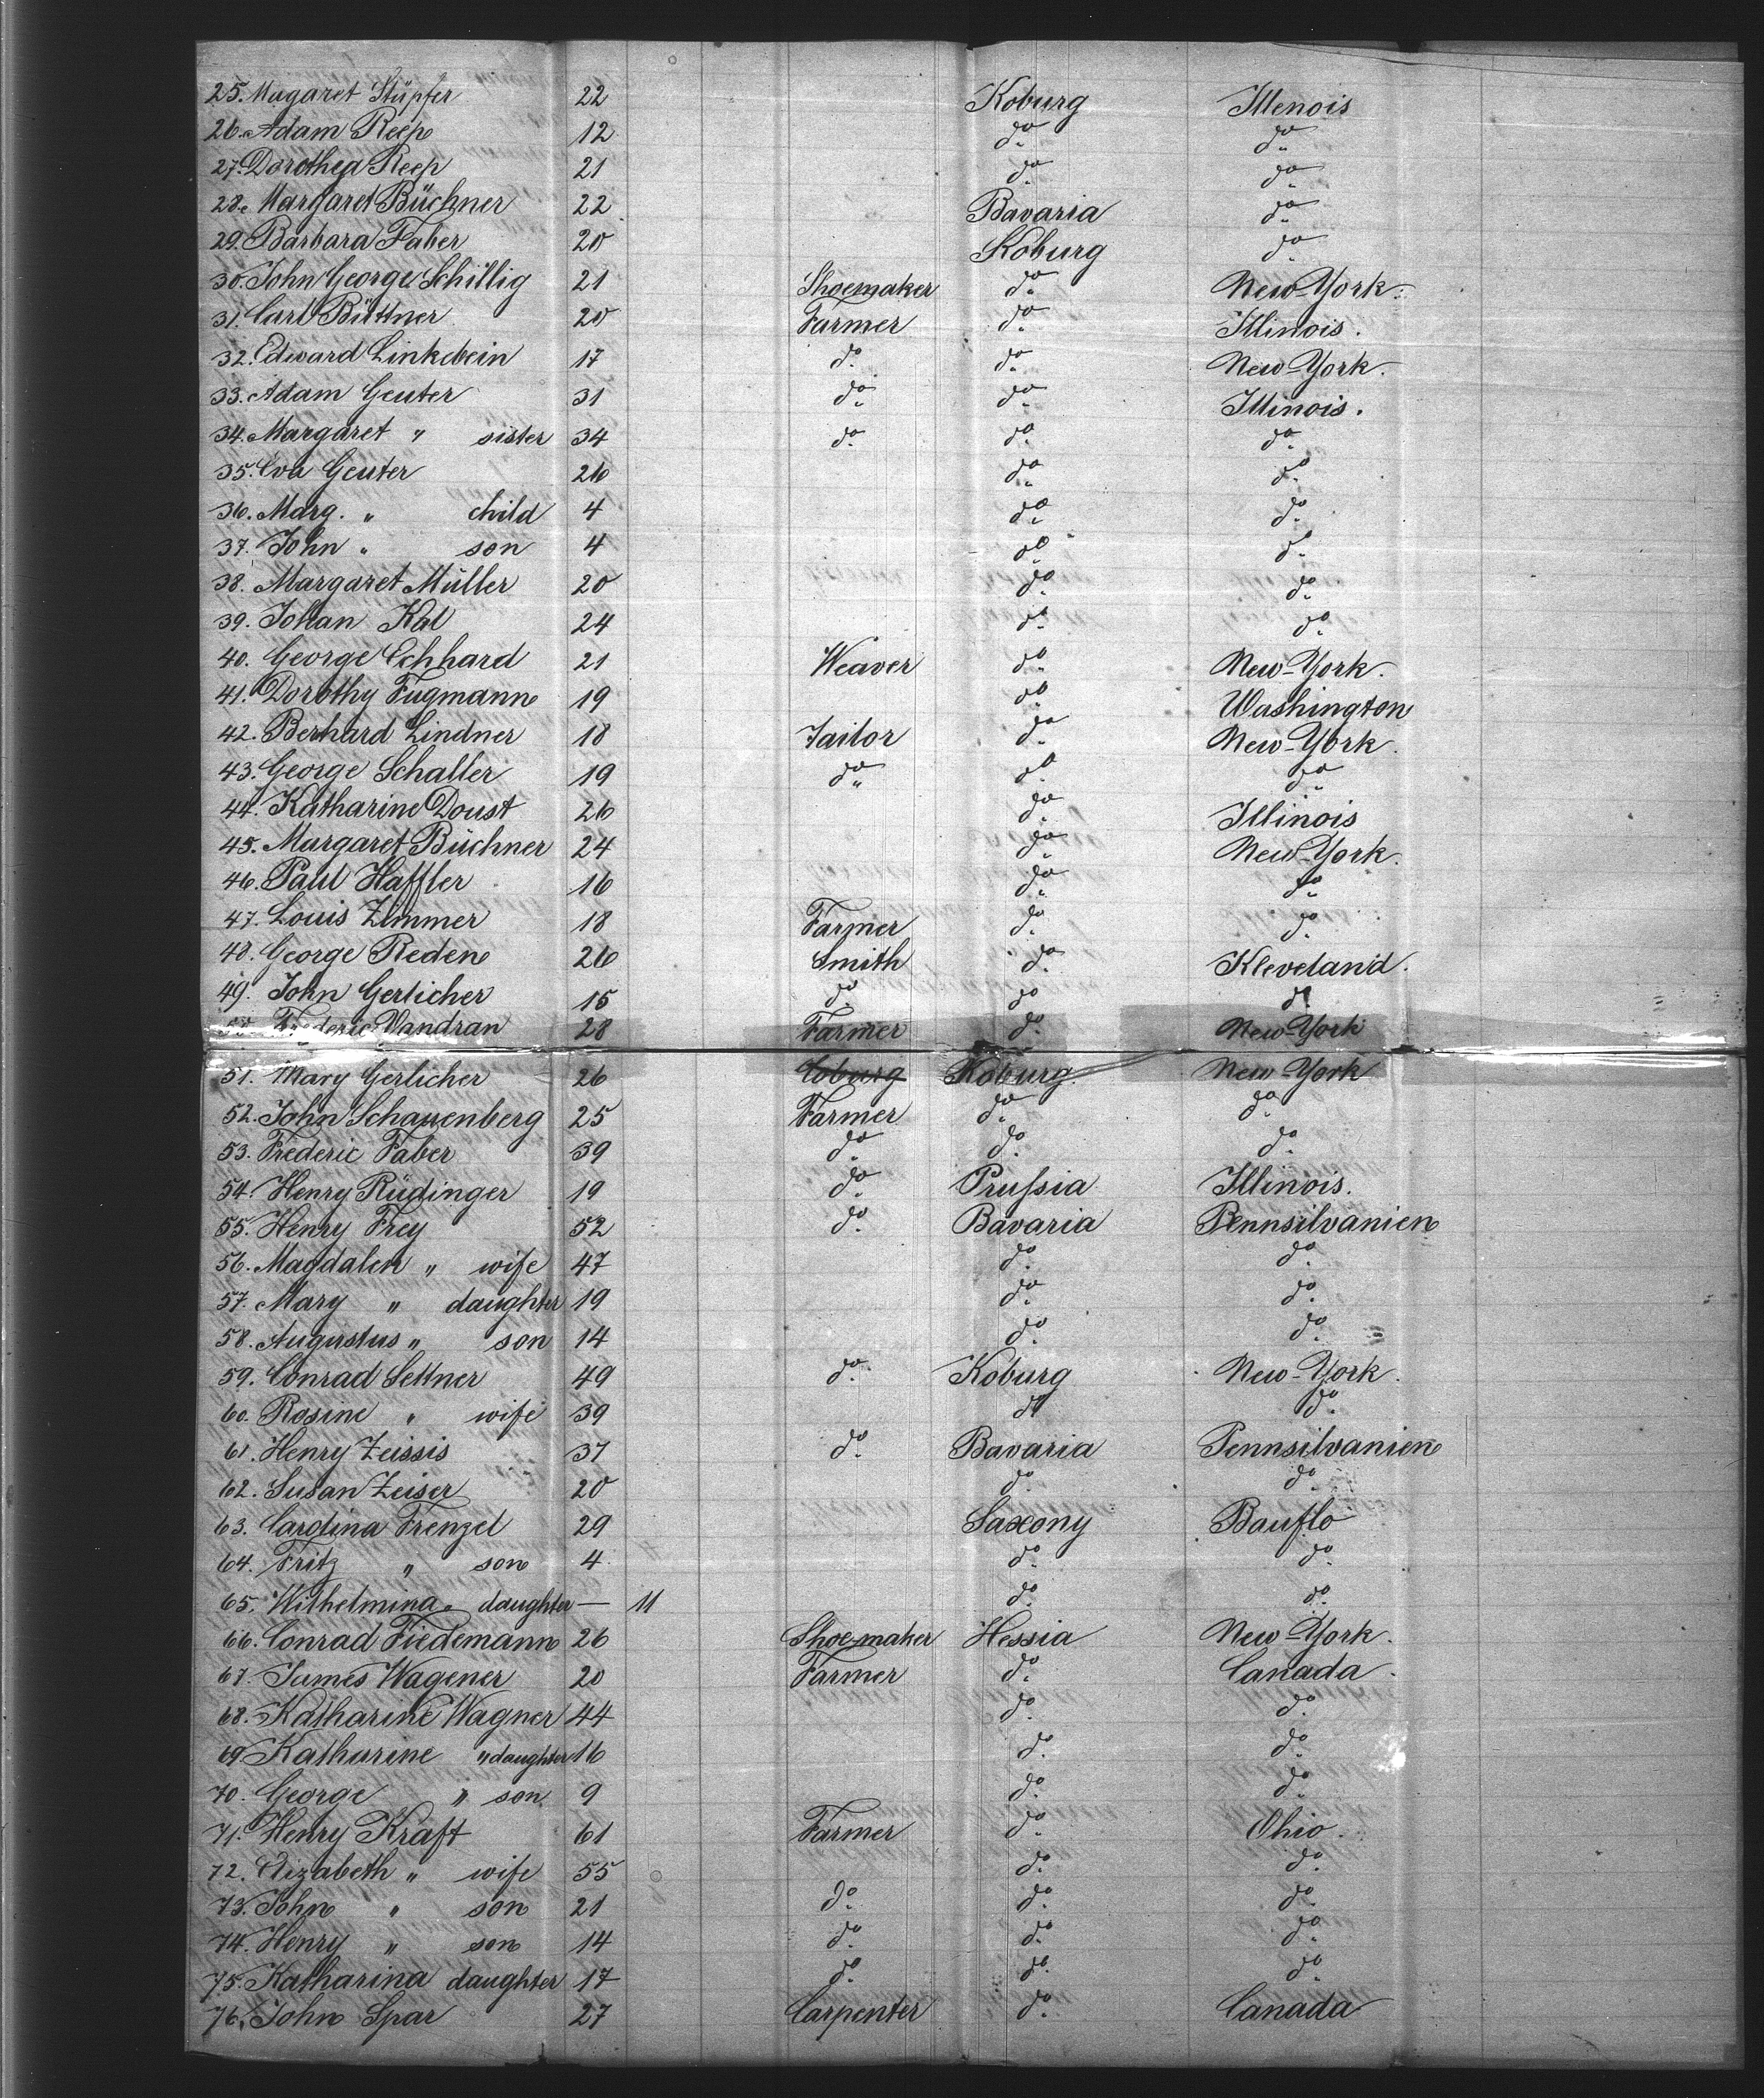 25. Magaret Stüpfer 22 Koburg Illenois
26. Adam Reep 12 do do
27. Dorothea Reep 21 do do
28. Margaret Büchner 22 Bavaria do
29. Barbara Faber 20 Koburg do
30. John George Schillig 21 Shoemaker do New-York.
31. Carl Büttner 20 Farmer do Illinois.
32. Edward Linkebein 17 do do New-York.
33. Adam Geuter 31 do do Illinois.
34. Margaret " sister 34 do do do
35. Eva Geuter 26 do do
36. Marg. " child 4 do do
37. John " son 4 do do
38. Margaret Müller 20 do do
39. Johan Kal 24 do do
40. George Eckhard 21 Weaver do New-York.
41. Dorothy Fugmann 19 do Washington
42. Berhard Lindner 18 Tailor do New-York.
43. George Schaller 19 do do do
44. Katharine Doust 26 do Illinois
45. Margaret Büchner 24 do New-York.
46. Paul Haffler 16 do do
47. Louis Zimmer 18 Farmer do do
48. George Reden 26 Smith do Kleveland.
49. John Gerlicher 15 do do do
50. Frederic Vandran 28 Farmer do New-York
51. Mary Gerlicher 26 Coburg Koburg. New York
52. John Schauenberg 25 Farmer do do
53. Frederic Faber 39 do do do
54. Henry Rüdinger 19 do Prussia Illinois.
55. Henry Frey 52 do Bavaria Pennsilvanien
56. Magdalen " wife 47 do do
57. Mary " daughter 19 do do
58. Augustus " son 14 do do
59. Conrad Settner 49 do Koburg New-York.
60. Rosine " wife 39 do do
61. Henry Zeissis 37 do Bavaria Pennsilvanien
62. Susan Zeiser 20 do do
63. Carolina Frenzel 29 Saxony Bauflo
64. Fritz " son 4 do do
65. Wilhelmina " daughter — 11 do do
66. Conrad Fiedemann 26 Shoe-maker Hessia New-York.
67. James Wagener 20 Farmer do Canada.
68. Katharine Wagner 44 do do
69. Katharine " daughter 16 do do
70. George " son 9 do do
71. Henry Kraft 61 Farmer do Ohio.
72. Elizabeth " wife 55 do do
73. John " son 21 do do do
74. Henry " son 14 do do do
75. Katharina daughter 17 do do do
76. John Spar 27 Carpenter do Canada